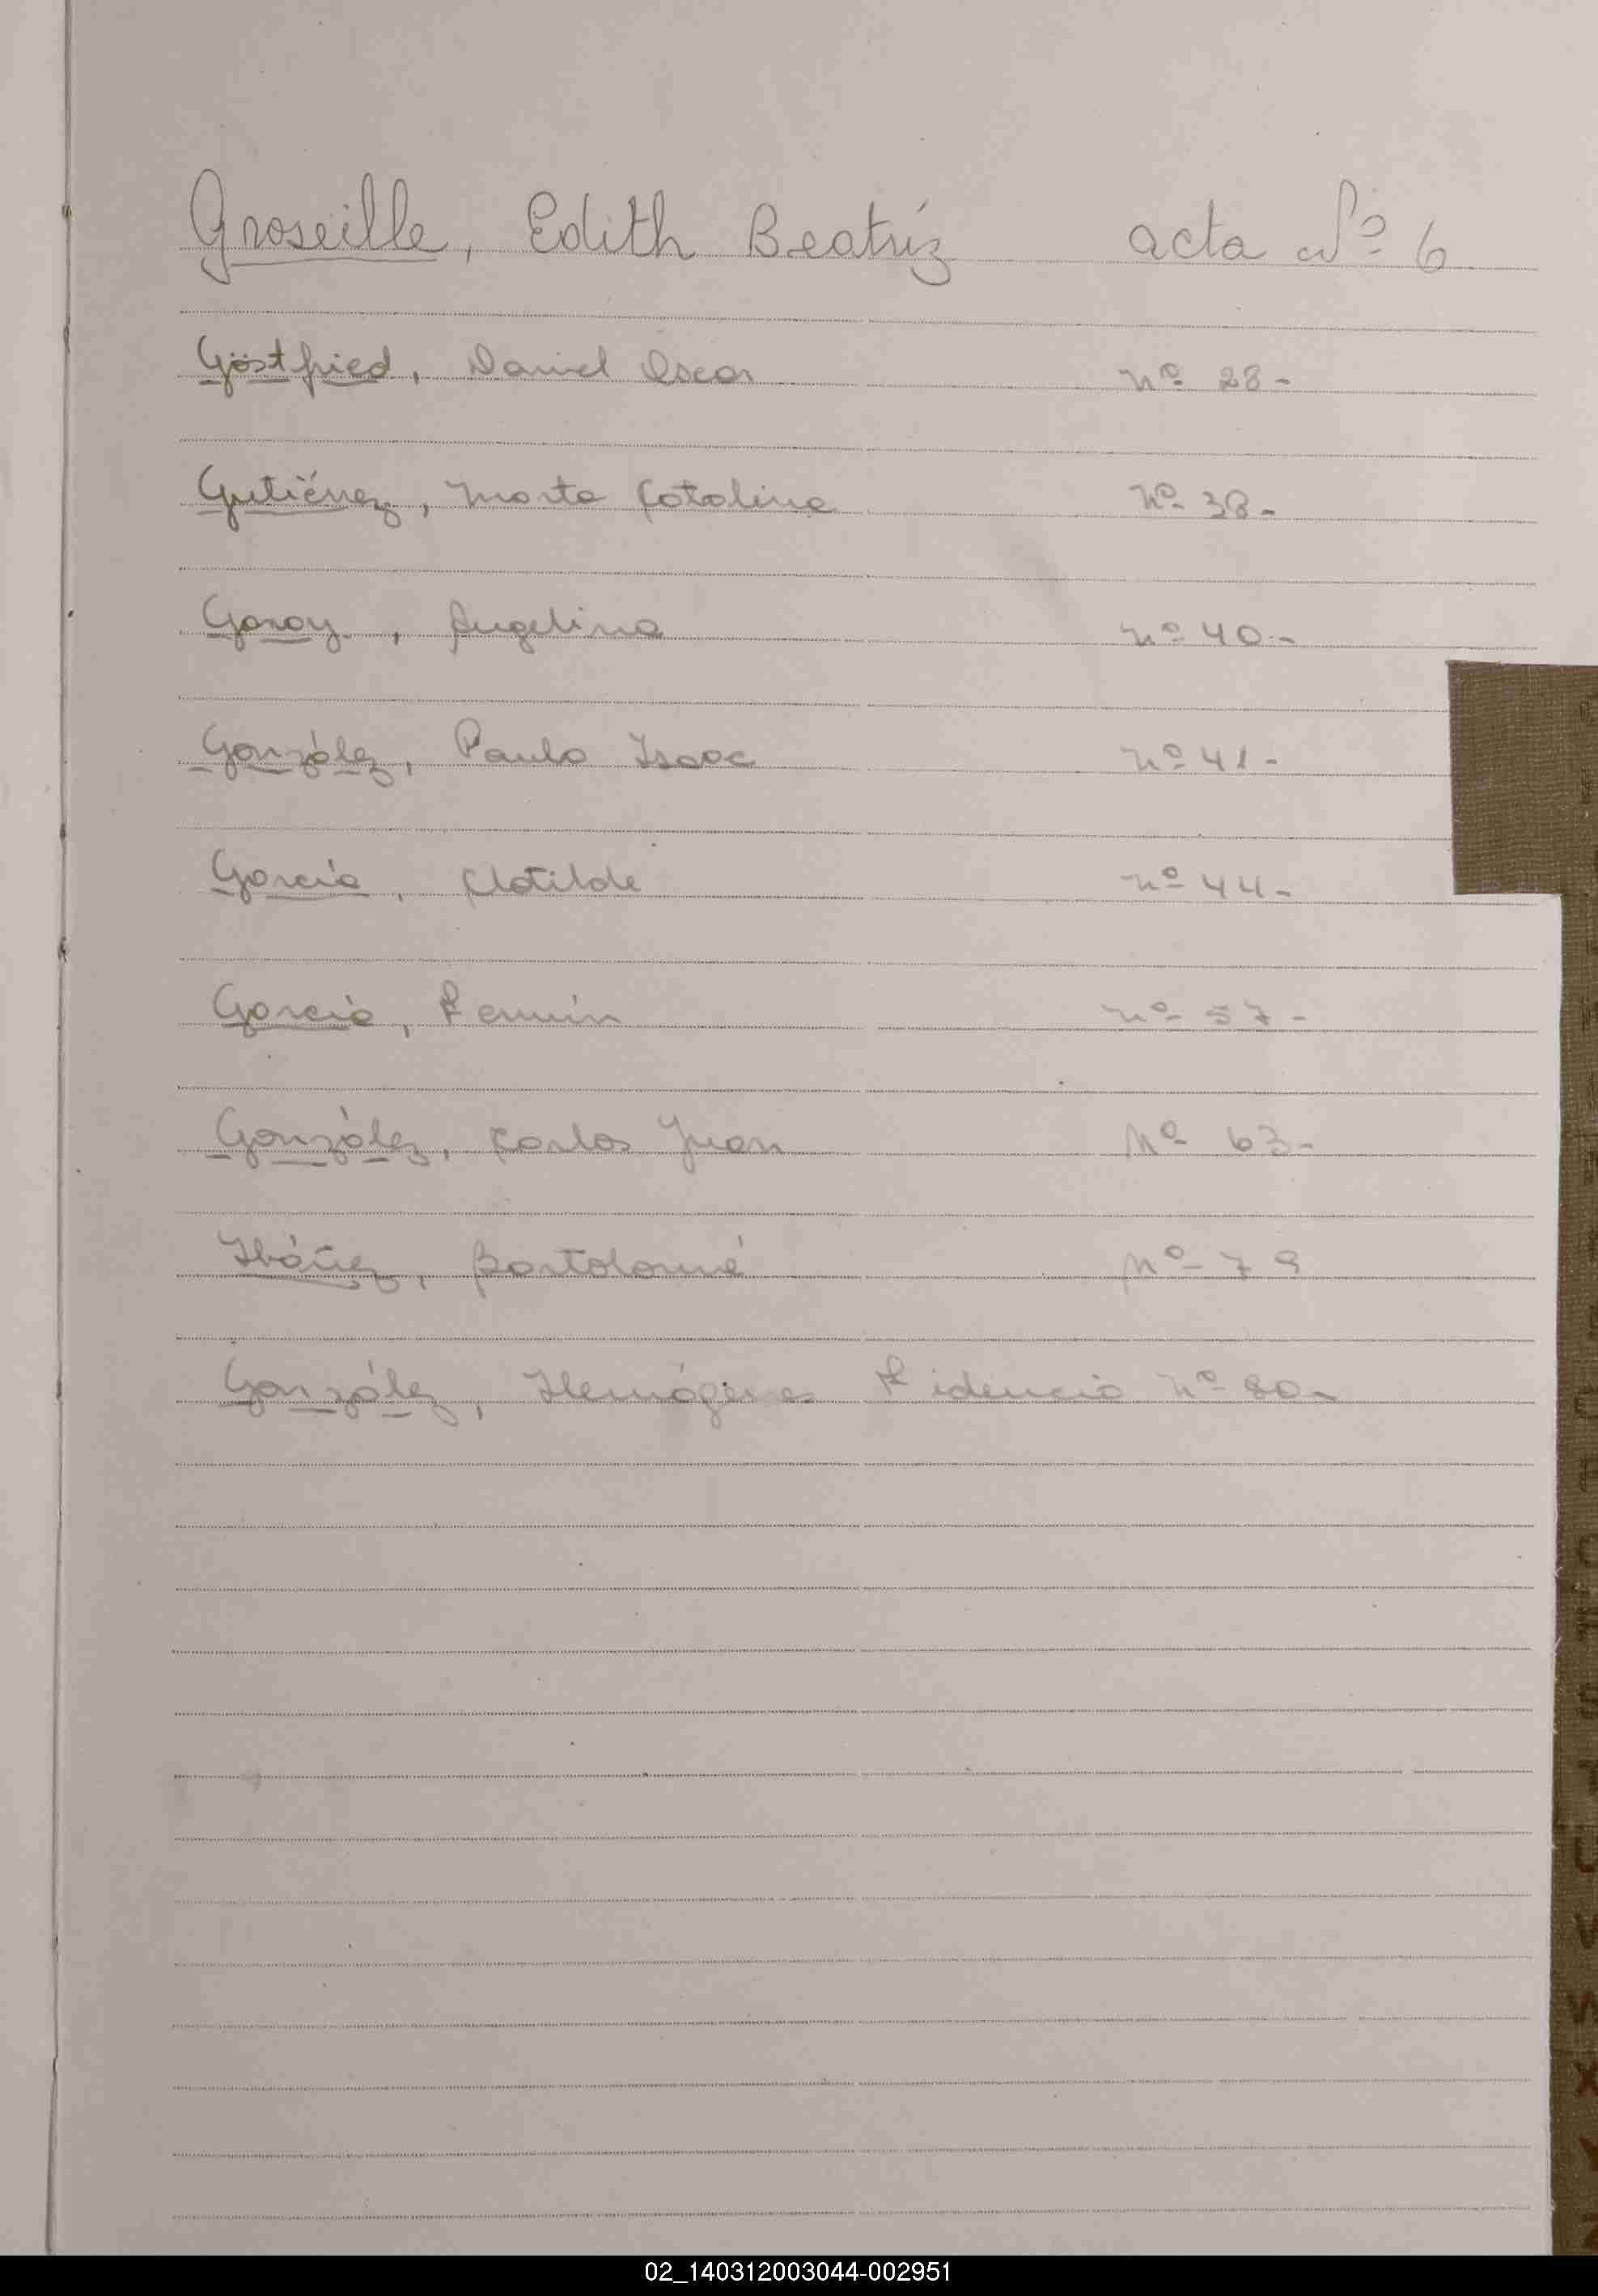 Groseille, Edith Beatriz acta Nº 6
Göstfried, Daniel Oscar Nº 28-
Gutiérrez, Marta Catalina Nº 38-
Garay, Angelina Nº 40.-
González, Paulo Isaac Nº 41-
García, Clotilde Nº 44-
García, Fermín Nº 57-
González, Carlos Juan Nº 63-
Ibáñez, Bartolomé Nº 79
González, Hermógenes Fidencio Nº 80-
02_140312003044-002951